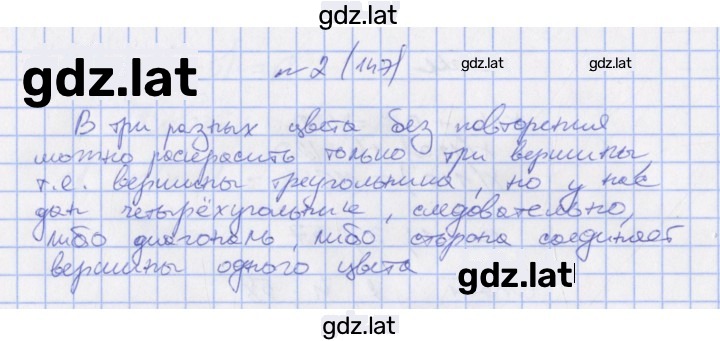 gdz.lat
gdz.lat
n 2 (147)
gdz.lat
gdz.lat
В три разных цвета без повторения
можно раскрасить только три вершины,
т.е. вершины треугольника, но у нас
дан четырёхугольник, следовательно,
либо диагональ, либо сторона соединяет
вершины одного цвета
gdz.lat
gdz.lat